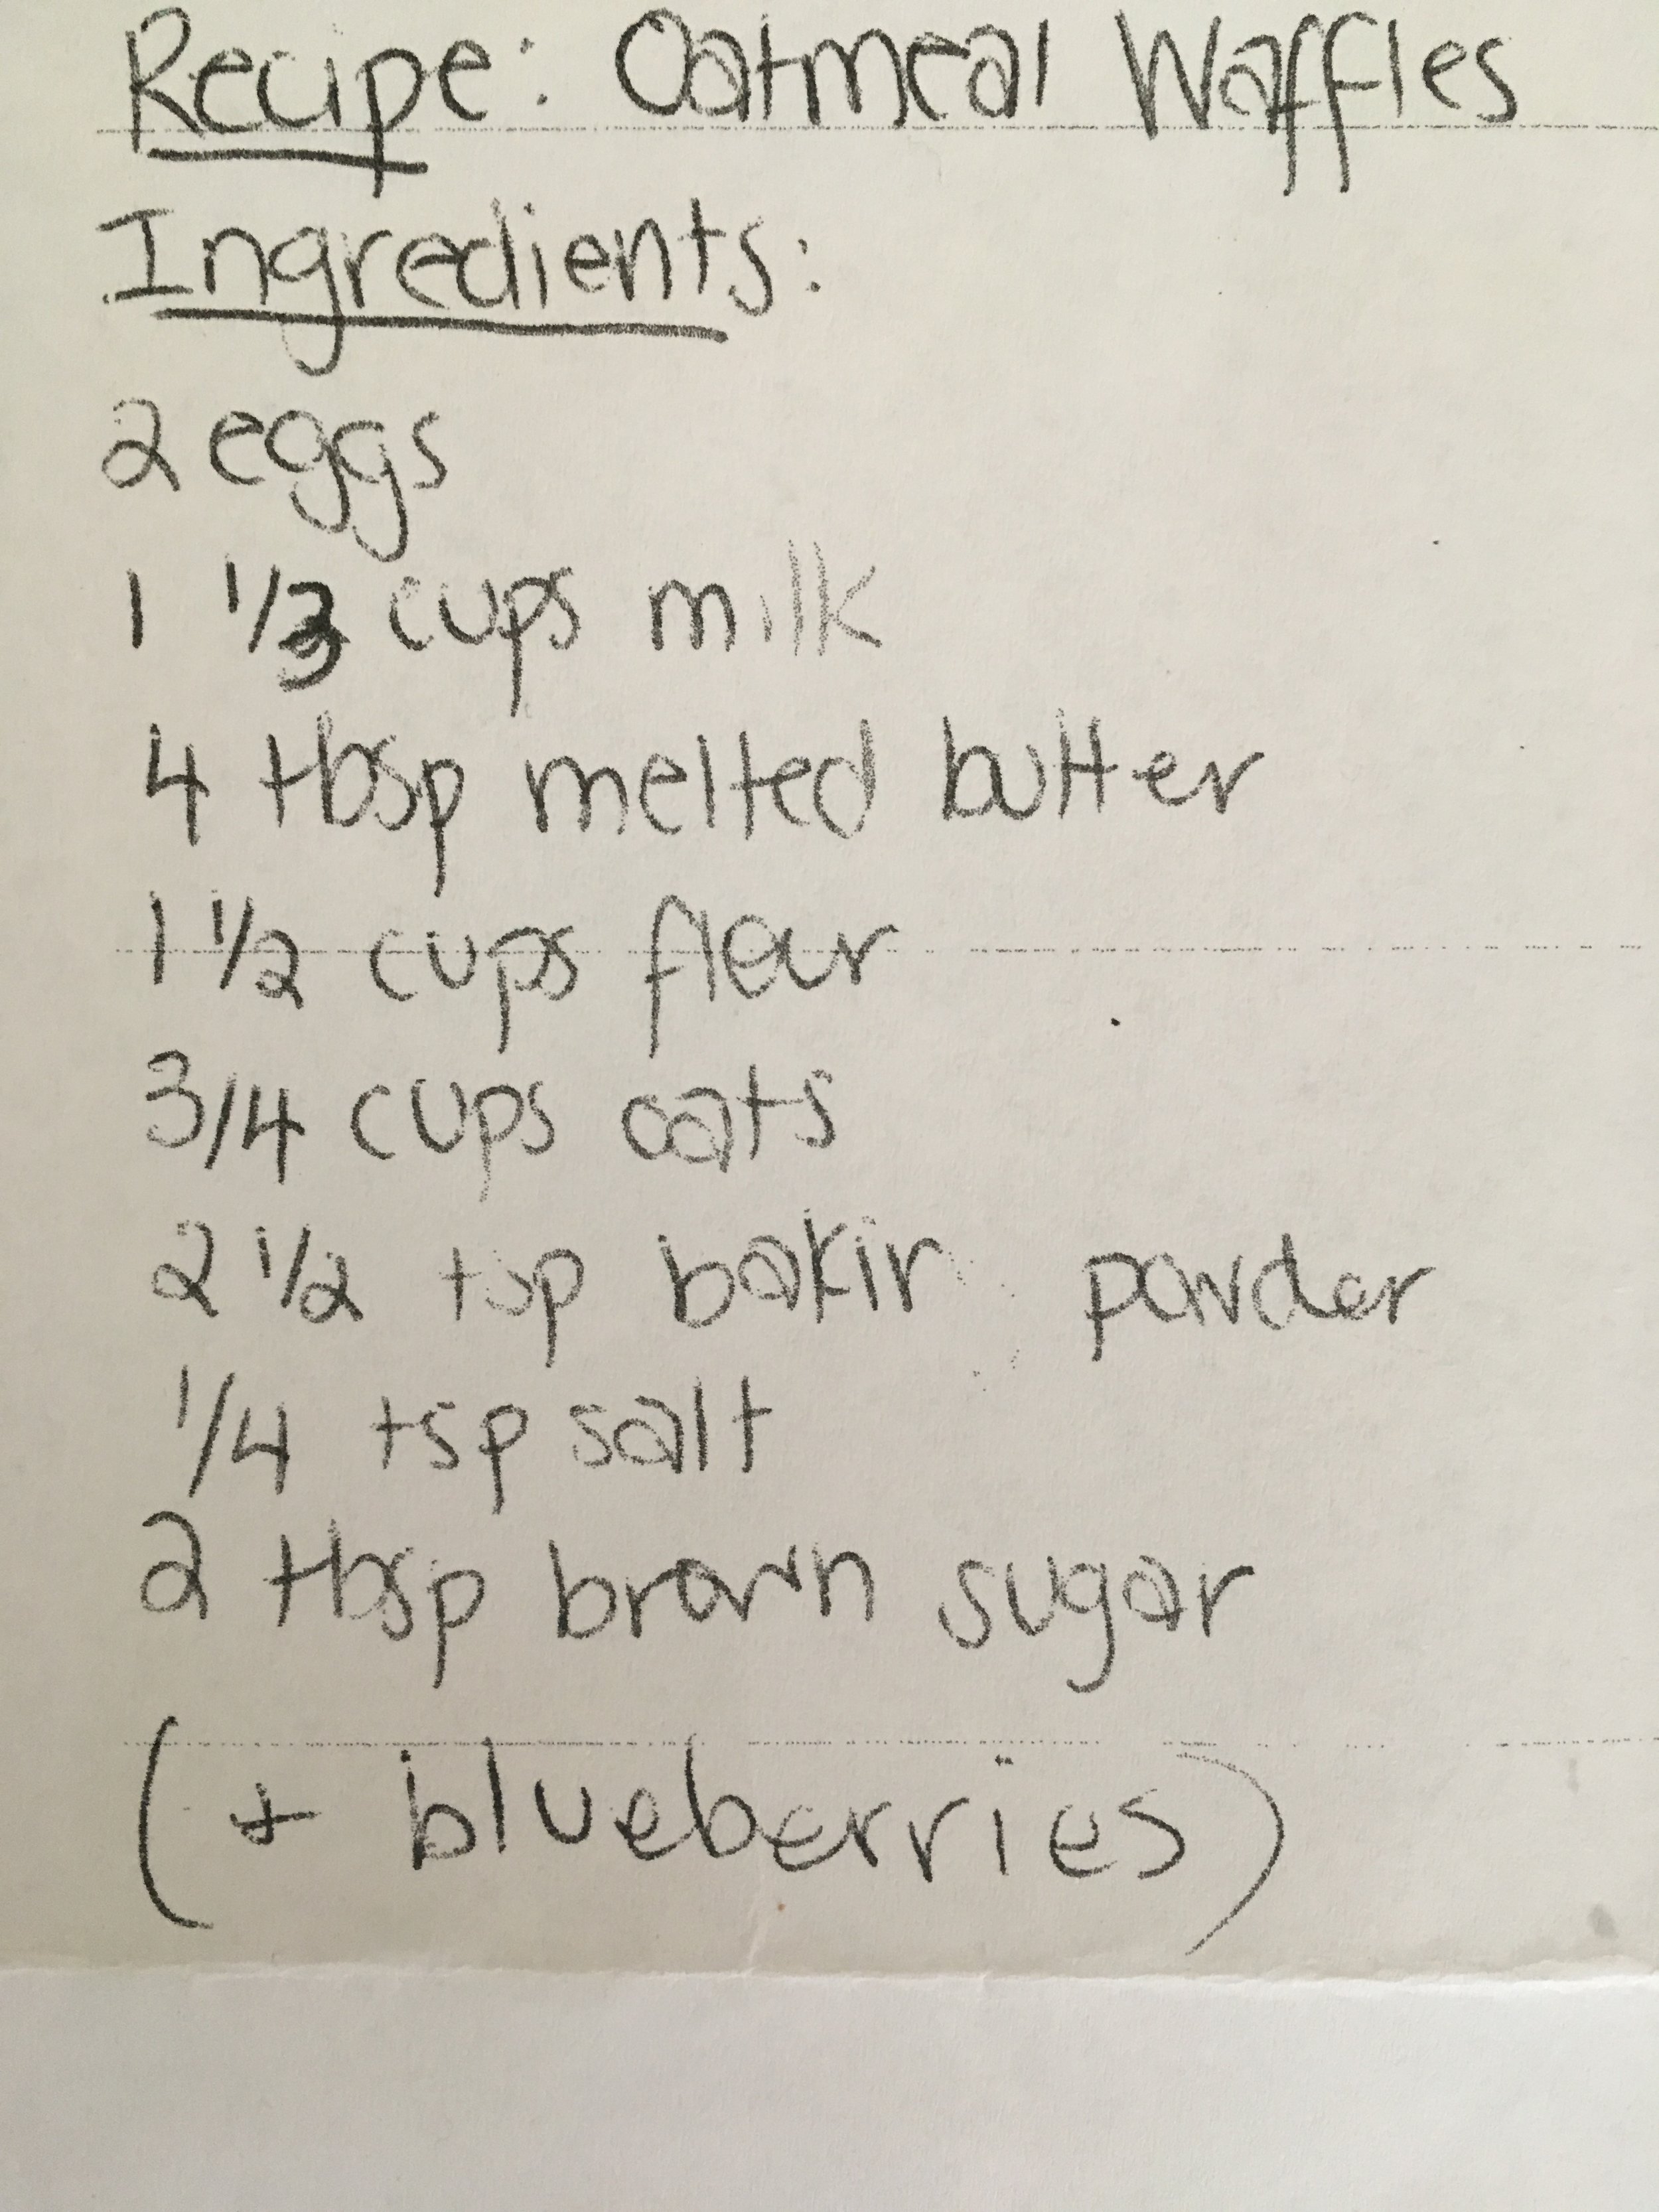 Recipe: Oatmeal Waffles
Ingredients:
2 eggs
1 1/3 cups milk
4 tbsp melted butter
1 1/2 cups flour
3/4 cups oats
2 1/2 tsp bakin powder
1/4 tsp salt
2 tbsp brown sugar
(+ blueberries)